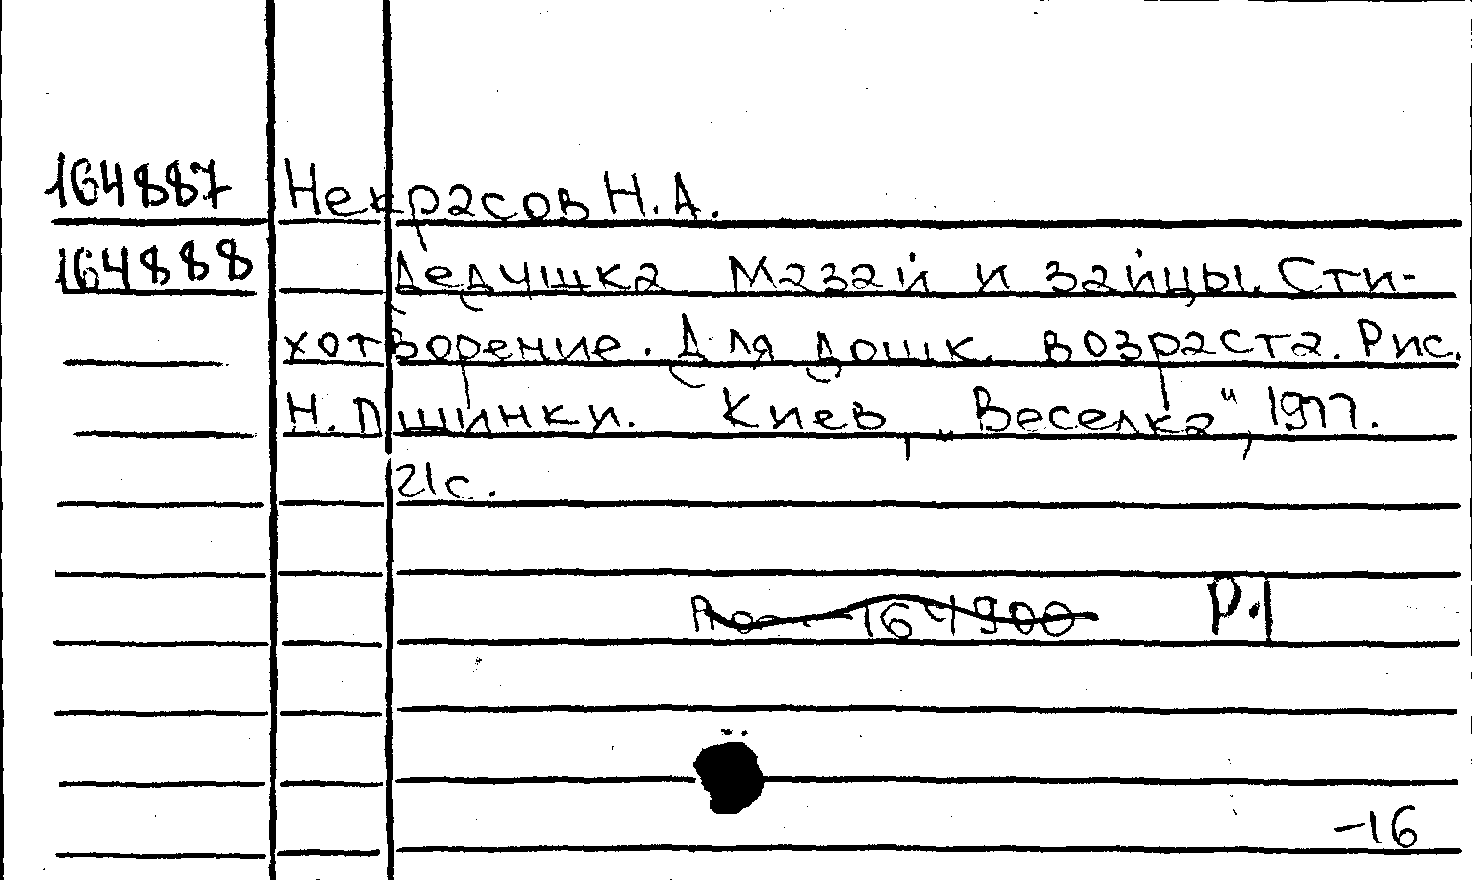 164887 Некрасов Н.А.
164888 Дедушка Мазай и зайцы. Сти-
хотворение. Для дошк. возраста. Рис.
Н. Пшинки. Киев, „Веселка“, 1977.
21с.
164900 Р.1
-16